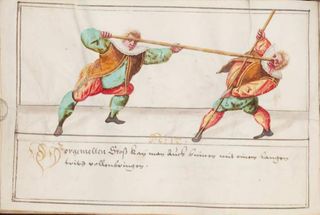 Vorgemelten Stoß kan man Auch binnen mit einem langen
tritt vollenbringen.